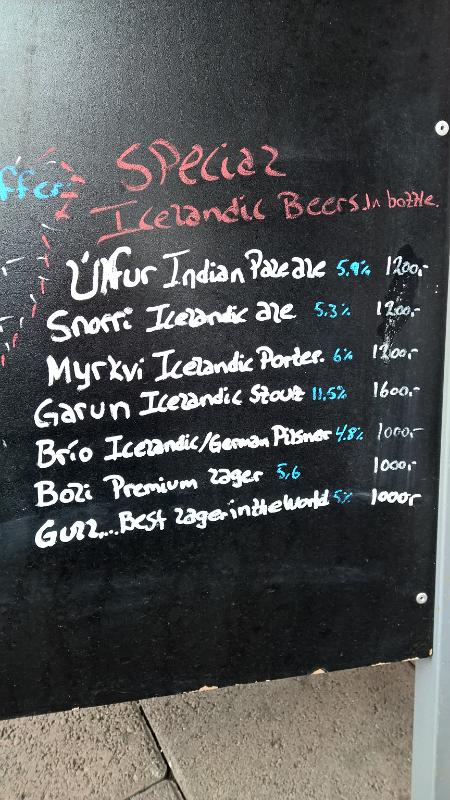 ffer
Special
Icelandic Beers In bottle.
Úlfur Indian Pale ale 5.9% 1200,-
Snorri Icelandic ale 5.3% 1200,-
Myrkvi Icelandic Porter. 6% 1200,-
Garun Icelandic Stout 11,5% 1600,-
Brío Icelandic/German Pilsner 4.8% 1000,-
Boli Premium Lager 5,6 1000,-
Gull,...Best Lager in the World 5% 1000,-